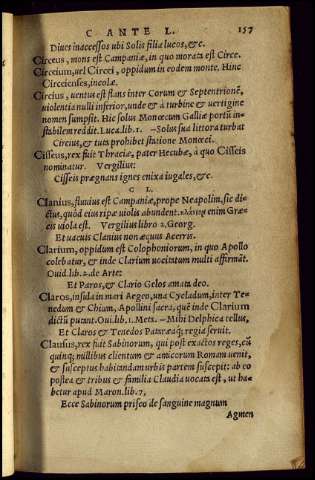 C ANTE L. 157
Diues inaccessos ubi Solis filia lucos, &c.
Circeus, mons est Campaniæ, in quo morata est Circe.
Circeium, uel Circei, oppidum in eodem monte. Hinc
Circeienses, incolæ.
Circius, uentus est flans inter Corum & Septentrionẽ,
uiolentia nulli inferior, unde & à turbine & uertigine
nomen sumpsit. Hic solus Monœcum Galliæ portũ in=
stabilem reddit. Luca. lib. 1. –Solus sua littora turbat
Circius, & tuta prohibet statione Monœci.
Cisseus, rex fuit Thraciæ, pater Hecubæ, à quo Cisseis
nominatur. Vergilius:
Cisseis prægnans ignes enixa iugales, &c.
C L.
Clanius, fluuius est Campaniæ, prope Neapolim, sic di=
ctus, quòd eius ripæ uiolis abundent. enim Græ=
cis uiola est. Vergilius libro 2. Georg.
Et uacuis Clanius non æcuus Acerris.
Clarium, oppidum est Colophoniorum, in quo Apollo
colebatur, & inde Clarium uocitatum multi affirmãt.
Ouid. lib. 2. de Arte:
Et Paros, & Clario Gelos amata deo.
Claros, insula in mari Aegeo, una Cycladum, inter Te=
nedum & Chium, Apollini sacra, quẽ inde Clarium
dictũ putant. Oui. lib. 1. Met. –Mihi Delphica tellus,
Et Claros & Tenedos Pataræaq; regia seruit.
Clausus, rex fuit Sabinorum, qui post exactos reges, cũ
quinq; millibus clientum & amicorum Romam uenit,
& susceptus habitandam urbis partem suscepit: ab eo
postea & tribus & familia Claudia uocata est, ut ha=
betur apud Maron. lib. 7,
Ecce Sabinorum prisco de sanguine magnum
Agmen